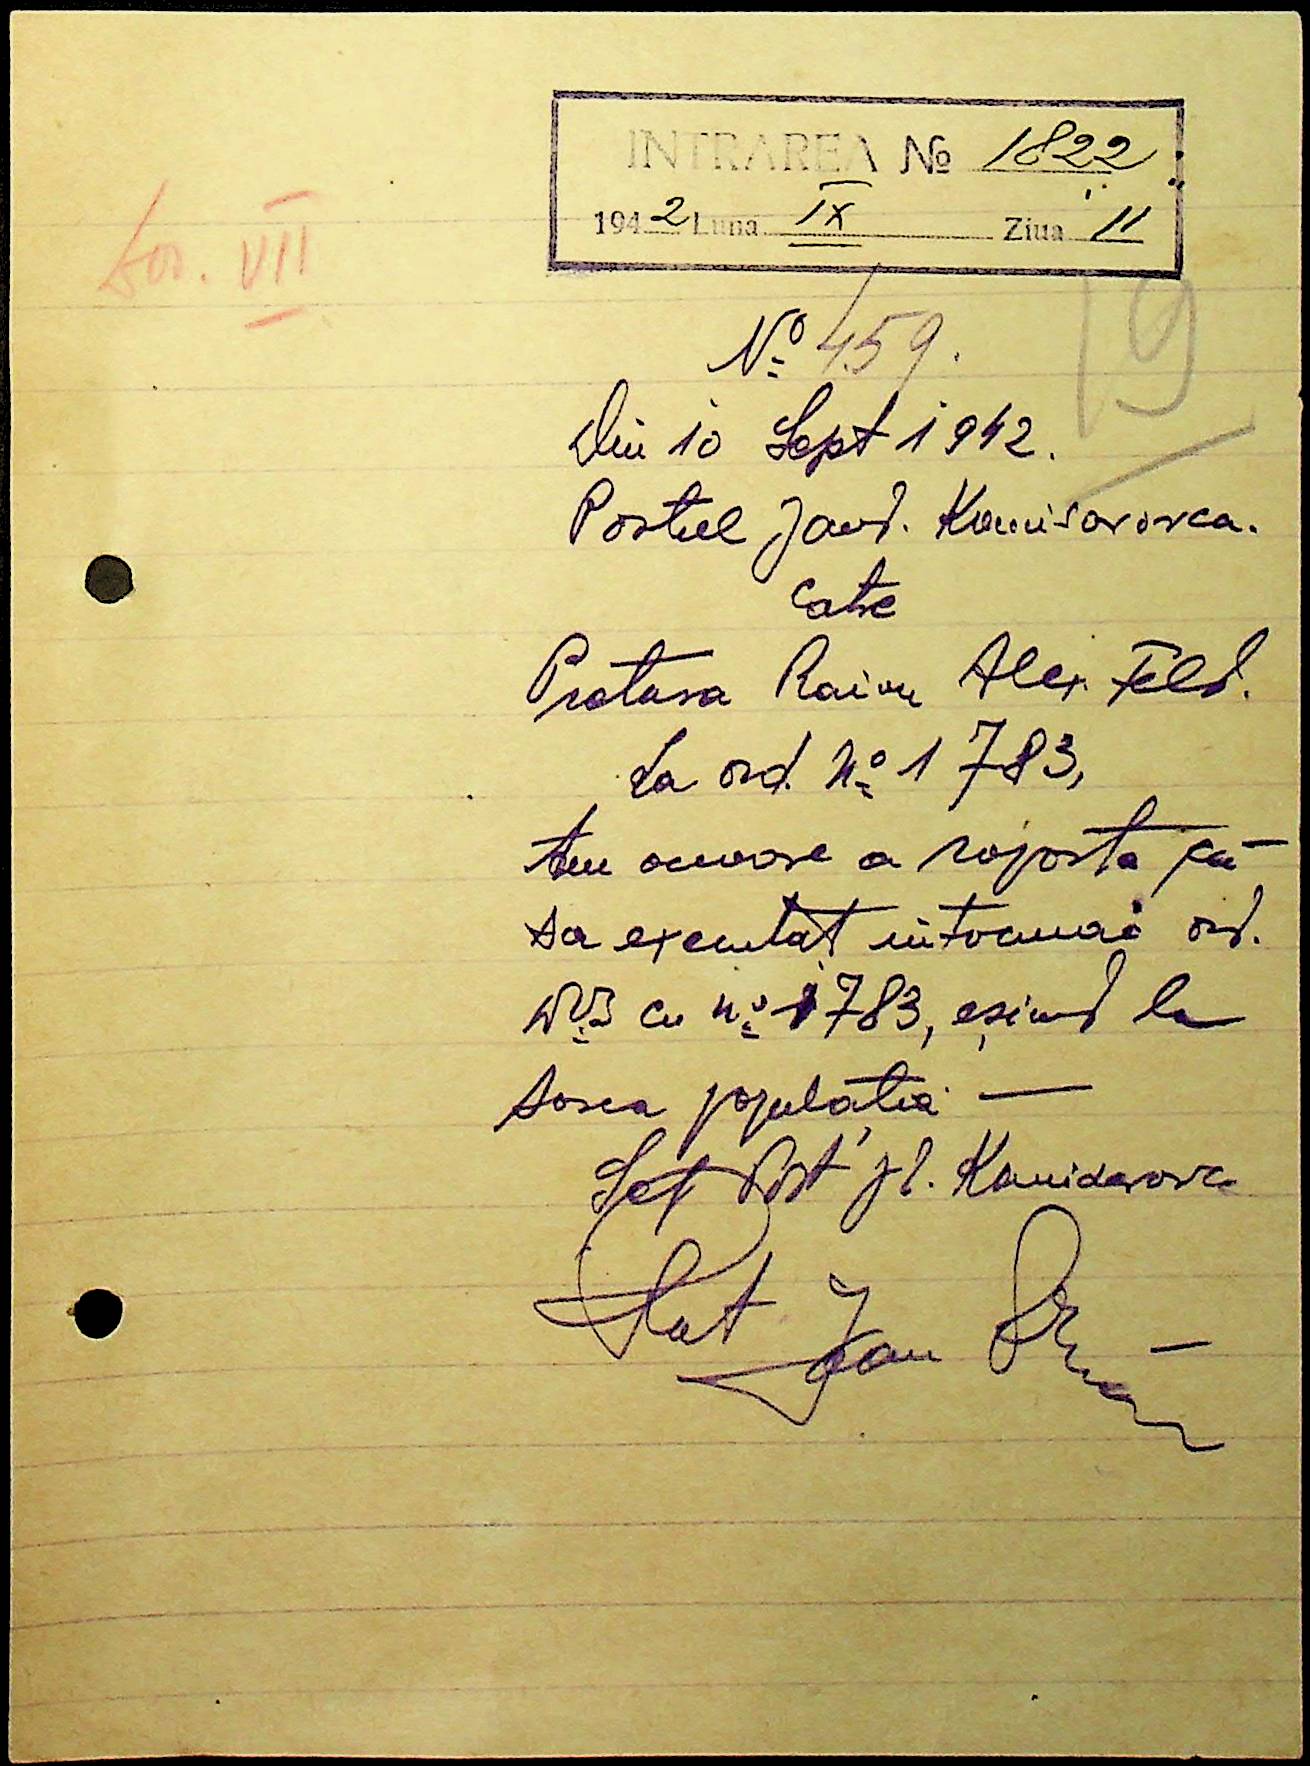 INTRAREA No 1822
1942 Luna IX Ziua 11
VII
19
No 459.
Din 10 Sept 1942.
Postul Jand. Komisarovca.
Catre
Pretura Raion Alex. Feld.
La ord. No 1783,
Am onoare a raporta că
sa executat intocmai ord.
DV. cu no 1783, eșind la
sosea populația —
Sef Post Jd. Komisarovca
Plut Jean